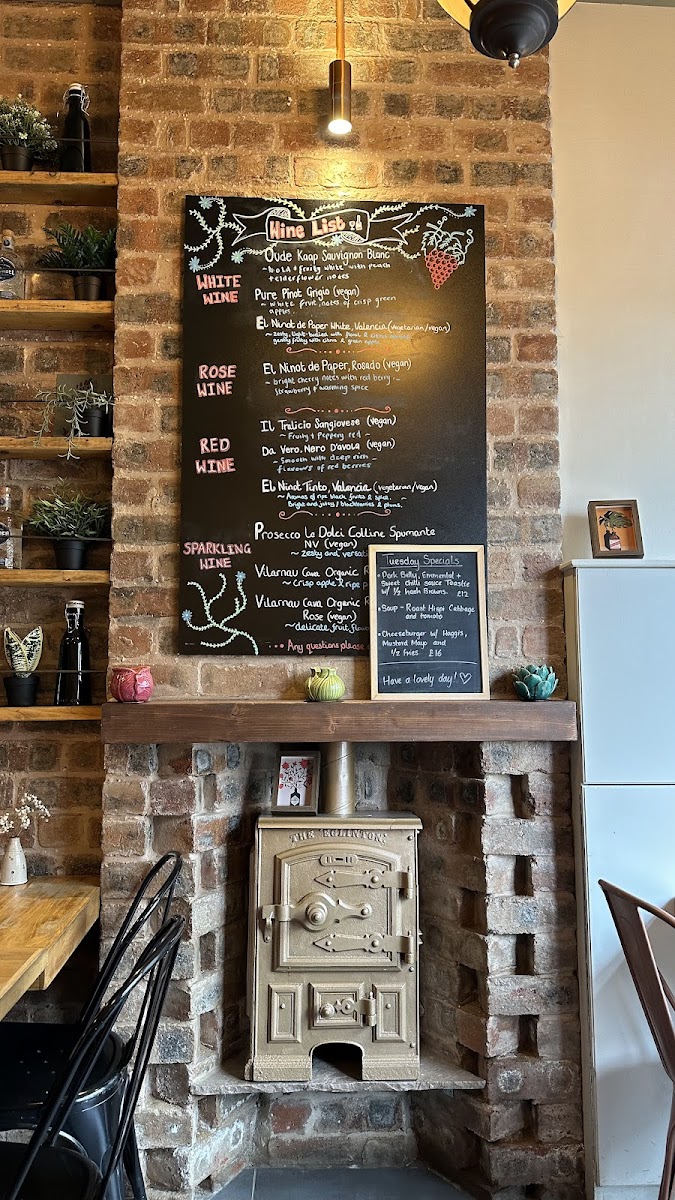 Wine List
WHITE
WINE
Oude Kaap Sauvignon Blanc
~ bold + fruity white with peach
+ elderflower notes
Pure Pinot Grigio (vegan)
~ white fruit, notes of crisp green
apples.
El Ninot de Paper White, Valencia (vegetarian/vegan)
~ zesty, light-bodied with floral & citrus
gently fruity with citrus & green apple
ROSE
WINE
El Ninot de Paper, Rosado (vegan)
~ bright cherry notes with red berry,
strawberry & warming spice
RED
WINE
Il Tralicio Sangiovese (vegan)
~ Fruity + Peppery red ~
Da Vero, Nero D'avola (vegan)
~ Smooth with deep rich
flavours of red berries
El Ninot Tinto, Valencia (vegetarian/vegan)
~ Aromas of ripe black fruits & spice.
Bright and juicy / blackberries & plums.
SPARKLING
WINE
Prosecco Le Dolci Colline Spumante
NV (vegan)
~ zesty and versa
Vilarnau Cava Organic R
~ crisp apple & ripe p
Vilarnau Cava Organic R
Rose (vegan)
~ delicate fruit, flow
Any questions please
Tuesday Specials
• Pork Belly, Emmental +
Sweet chilli sauce Toastie
w/ 1/2 hash Browns. £12
• Soup - Roast Hispi Cabbage
and tomato
• Cheeseburger w/ Haggis,
Mustard Mayo and
1/2 fries £16
Have a lovely day! ♡
THE "EGLINTON"